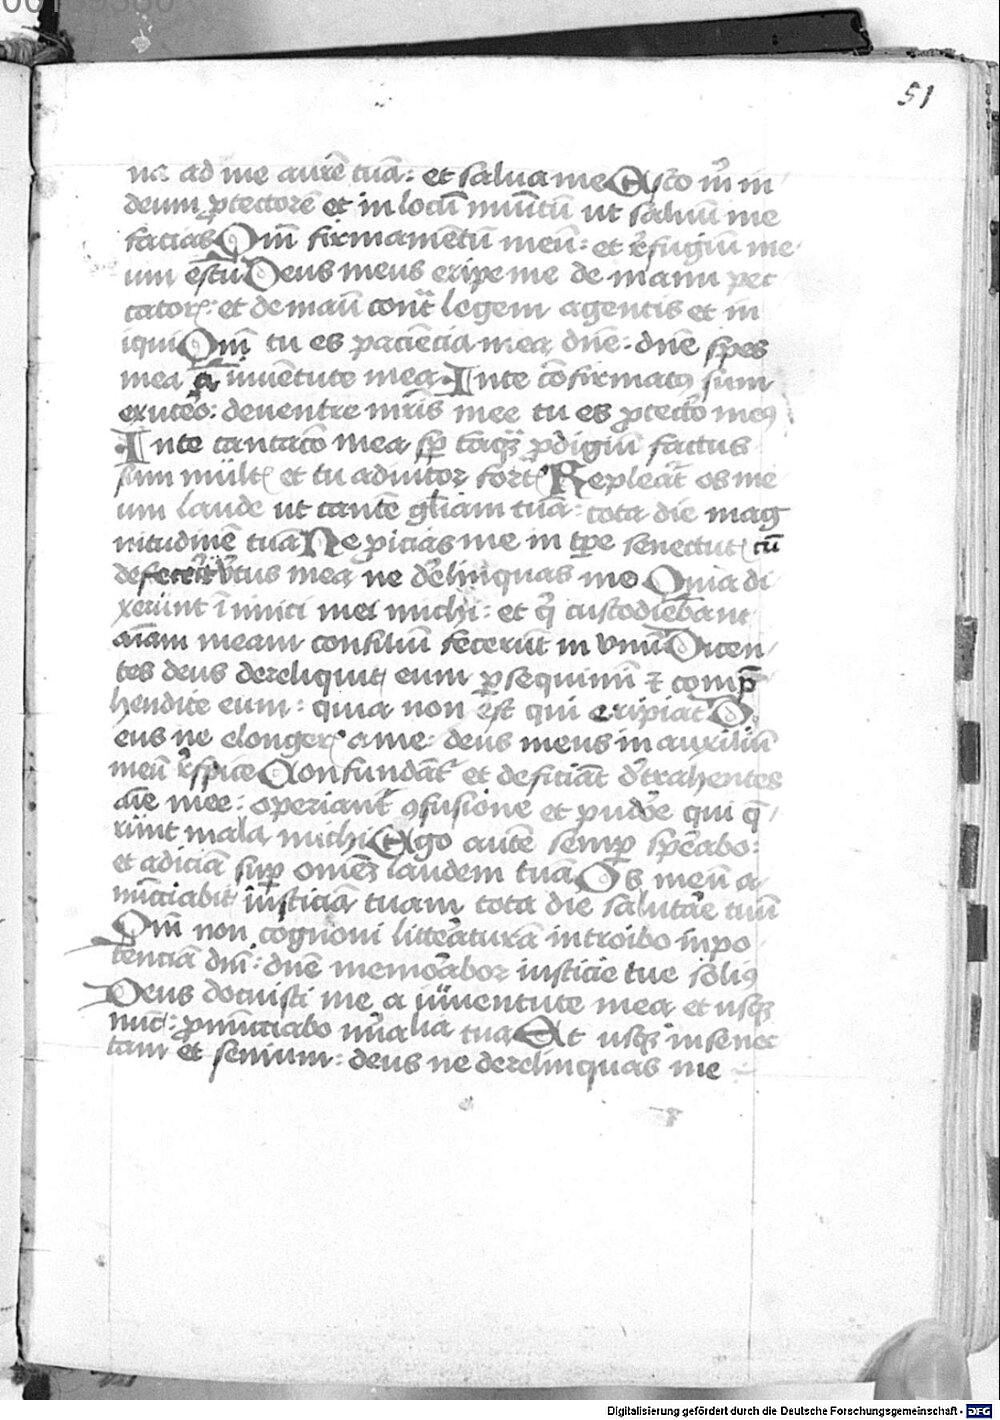 51
na ad me aurē tuā: et salua me Esto m̄ in
deum ꝓtectorē et in locū munitū ut saluū me
facias Qm̄ firmamētū meū: et refugiū me
um es tu Deus meus eripe me de manu pec
catoris: et de manu cont̄ legem agentis et in
iqui Qm̄ tu es paciēcia mea dn̄e: dn̄e spes
mea a iuuētute mea In te cōfirmatꝰ sum
ex utero: de uentre mr̄is mee tu es ꝓtector meꝰ
In te cantacō mea sꝑ tāꝙ ꝓdigiū factus
sum multis et tu adiutor fortis Repleat̄ os me
um laude ut cantē gl̄iam tuā: tota die mag
nitudinē tuā Ne ꝓicias me in tꝑe senectutis cū
defecerit v̄tus mea ne derelinquas me Quia di
xerunt inimici mei michi: et q̄ custodiebant
aīam meam consiliū fecerūt in vnū Dicen
tes deus dereliquit eum ꝑsequimini ⁊ comp̄
hendite eum: quia non est qui eripiat D
eus ne elongeris a me: deus meus in auxiliū
meū respice Confundant̄ et deficiāt detrahentes
aīe mee: operiant̄ ꝯfusione et pudore qui q̄
runt mala michi Ego autē semꝑ sperabo:
et adiciā suꝑ omnē laudem tuā Os meū a
nūciabit iusticiā tuam tota die salutare tuū
Qm̄ non cognoui litteraturā introibo in po
tenciā dn̄i: dn̄e memorabor iusticie tue soliꝰ
Deus docuisti me a iuuentute mea et usꝙ
nūc: ꝓnūciabo mirabilia tua Et usꝙ in senec
tam et senium: deus ne derelinquas me
Digitalisierung gefördert durch die Deutsche Forschungsgemeinschaft - DFG